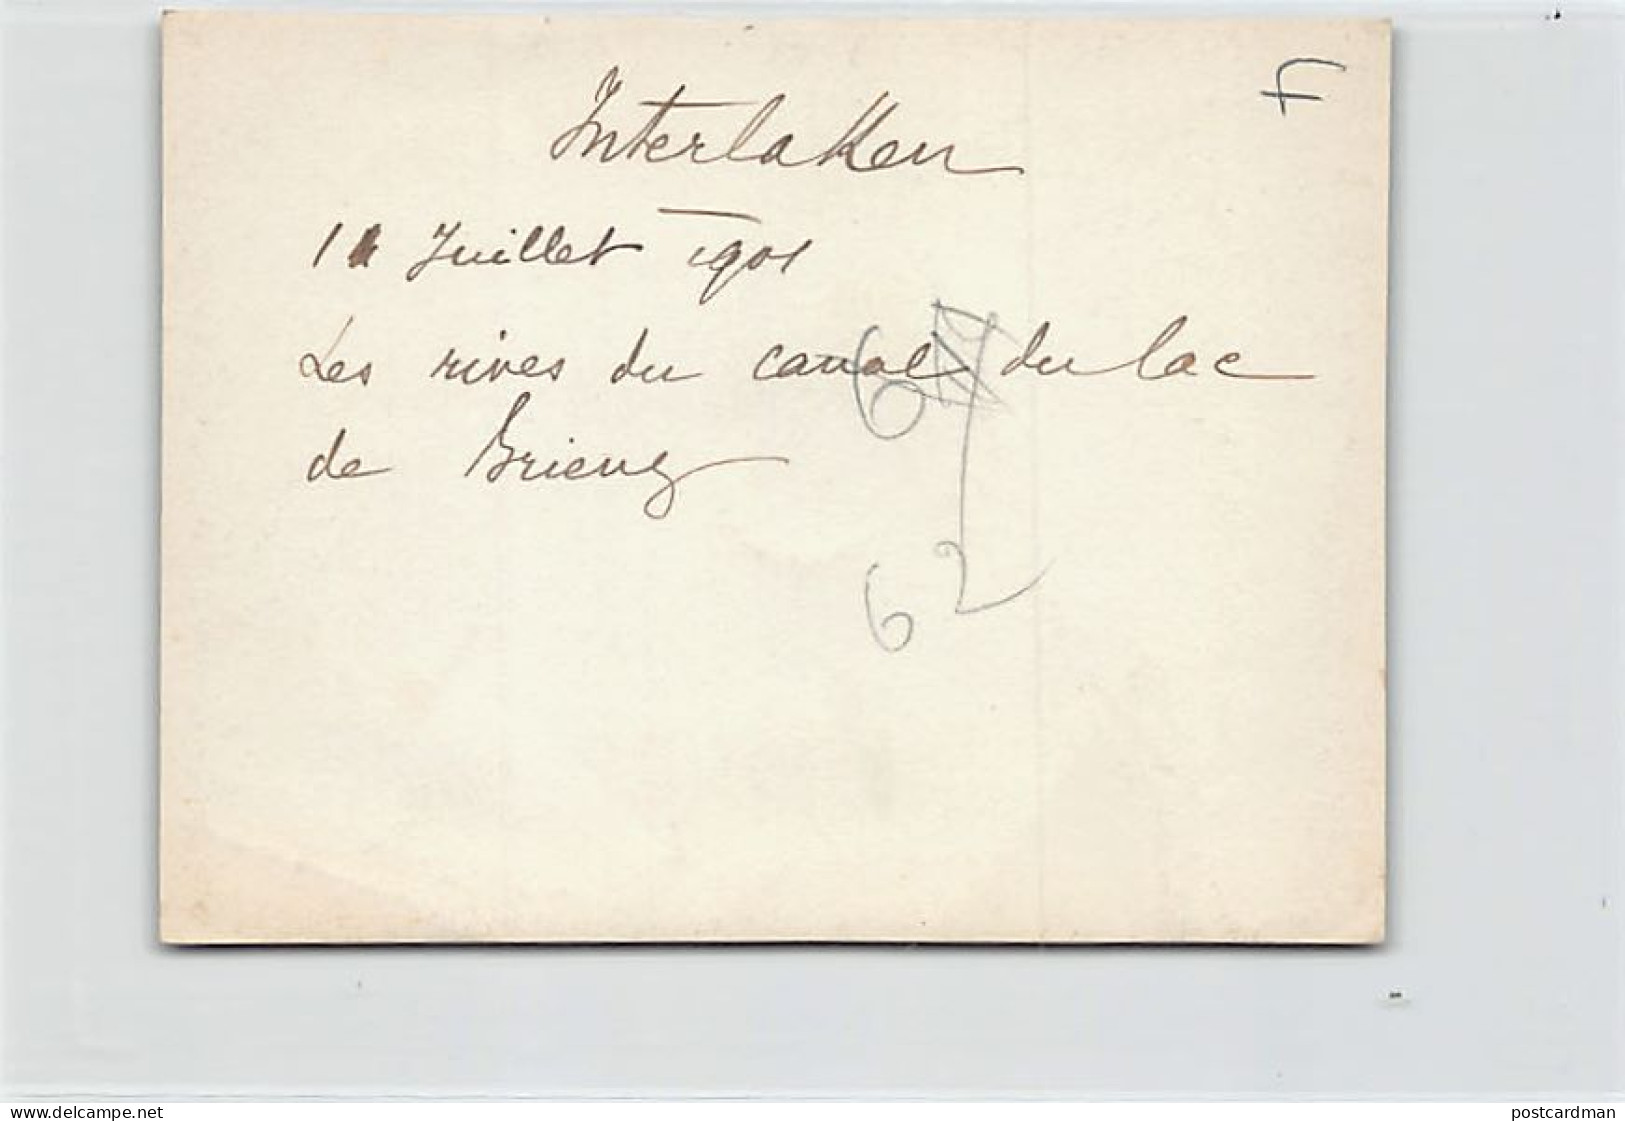 F
Interlaken
11 Juillet 1901
Les rives du canal du lac
de Brienz
67
62
delcampe.net
postcardman